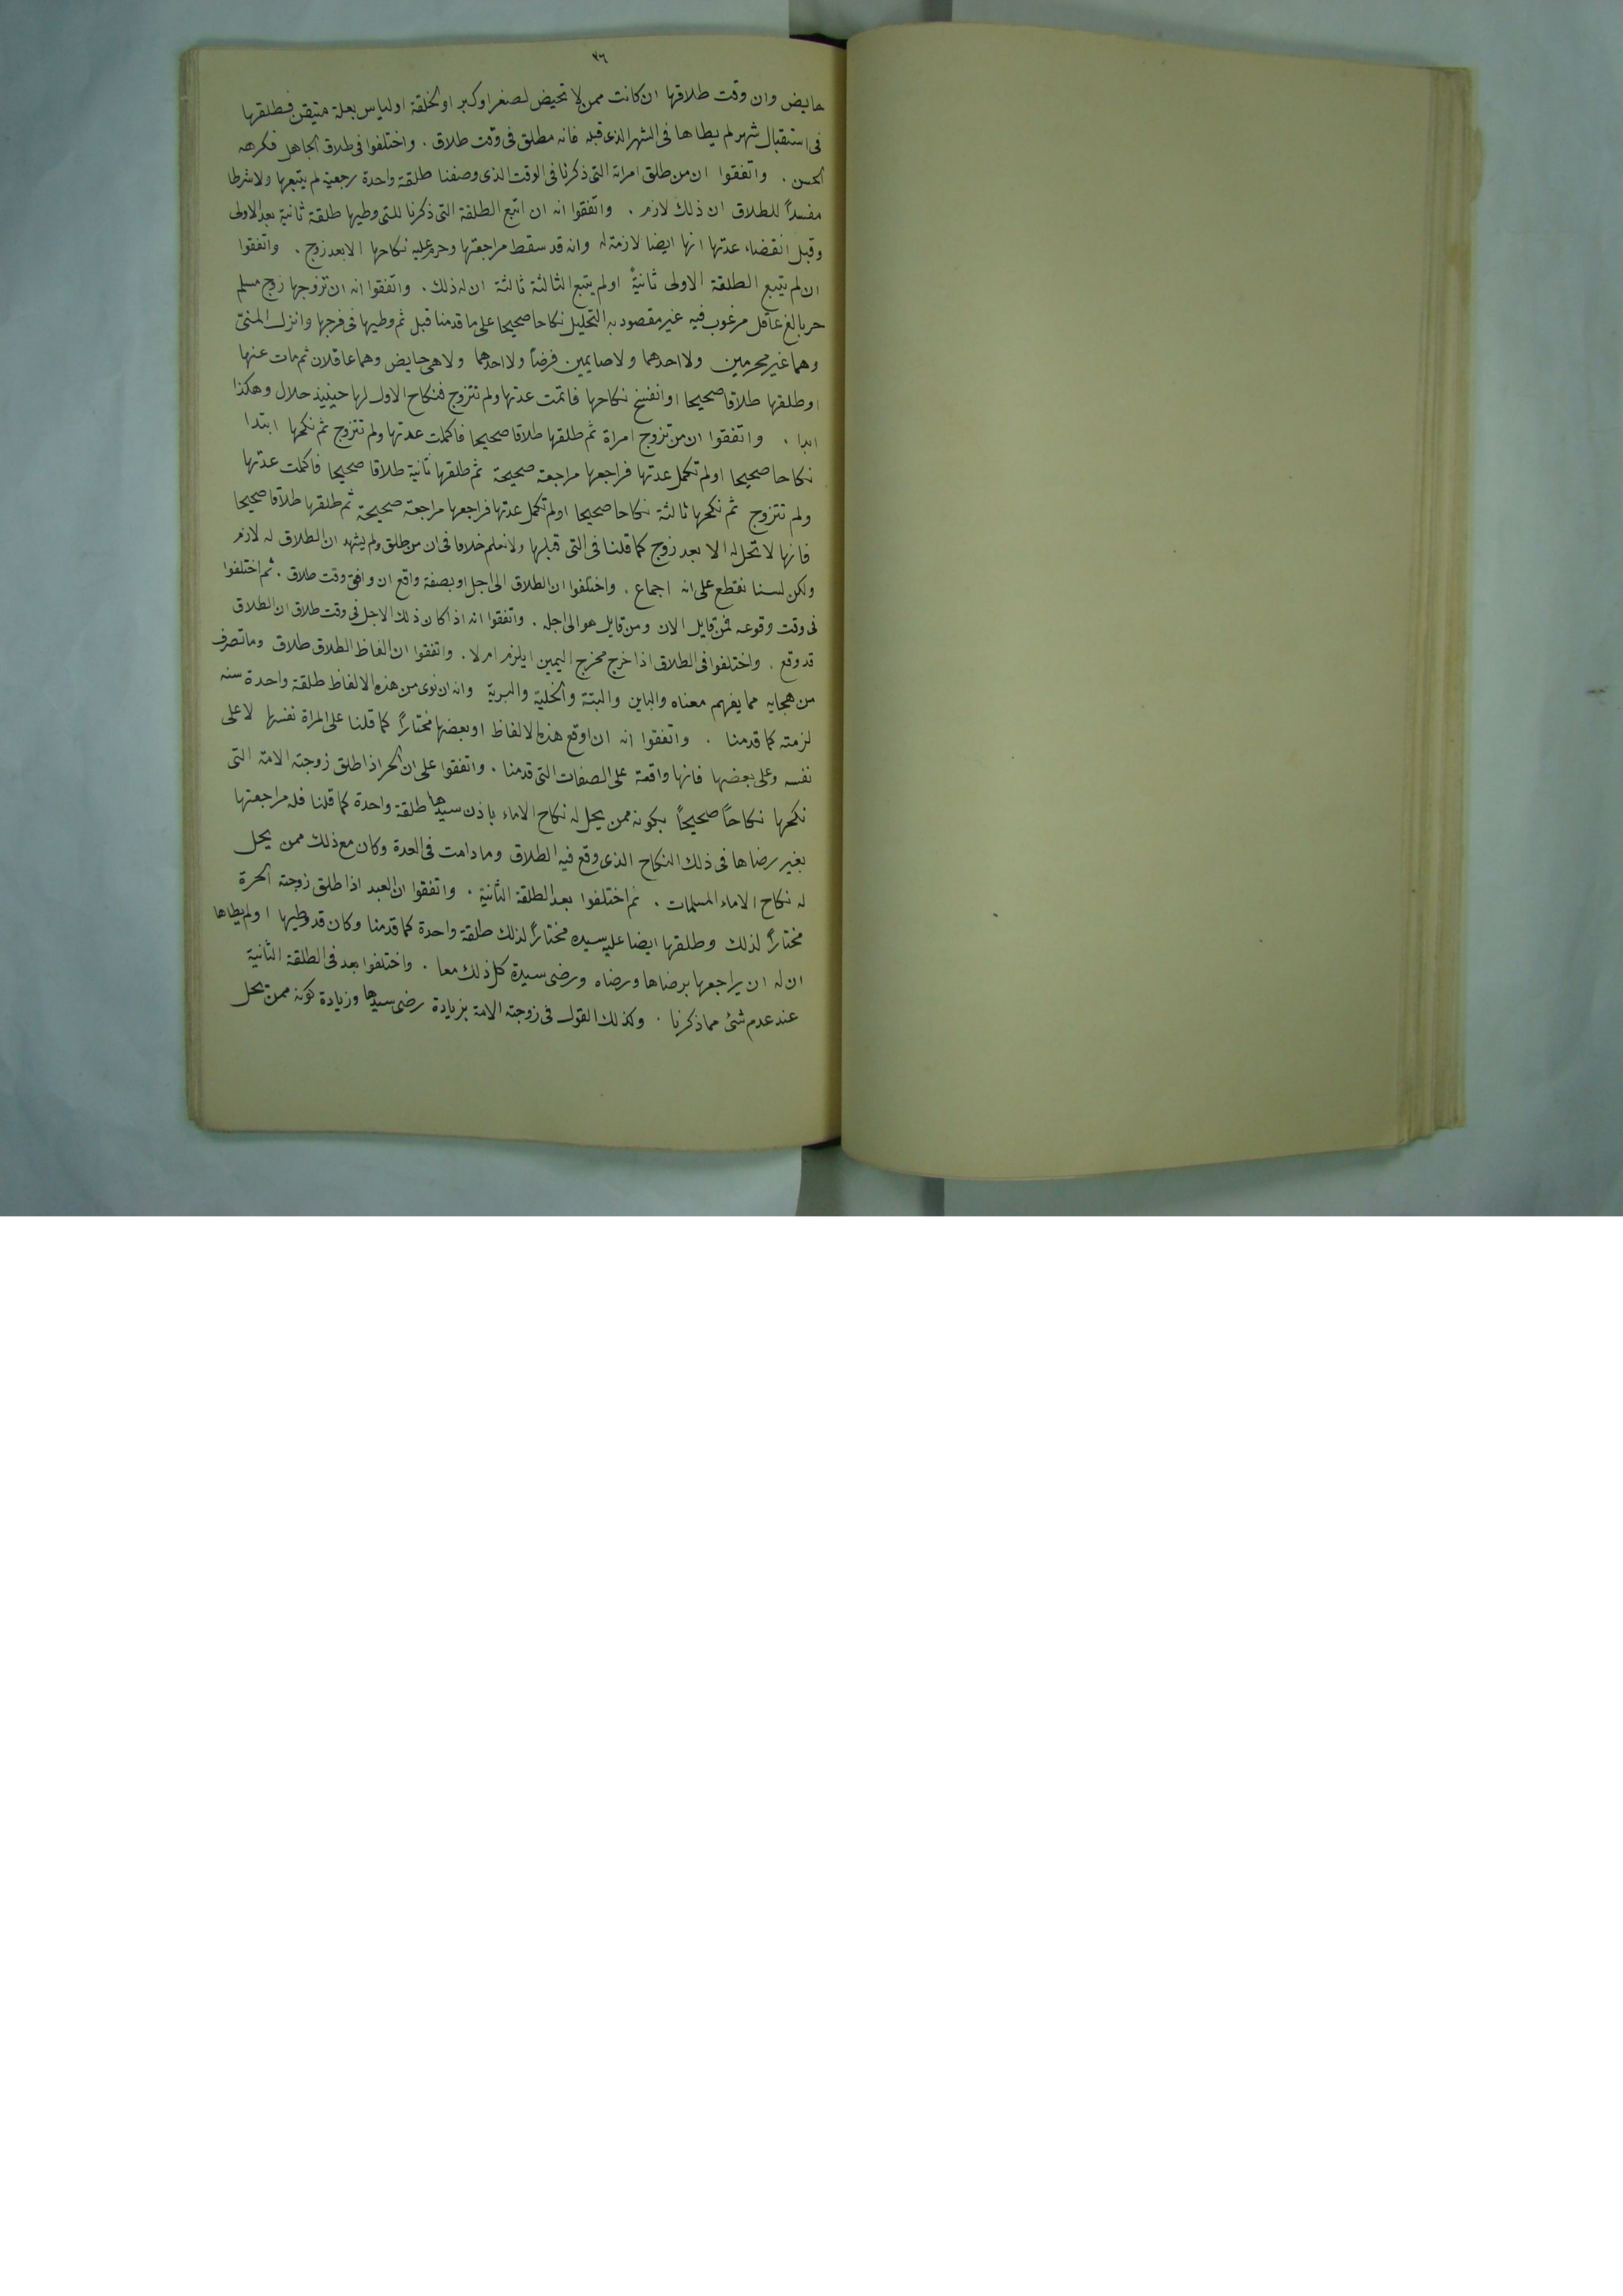 ٣٦
حايض وان وقت طلاقها ان كانت ممن لا تحيض لصغر او كبر او لخلقة او لياس بعلة متيقن فطلقها
فى استقبال شهر لم يطاها فى الشهر الذى قبله فانه مطلق فى وقت طلاق . واختلفوا فى طلاق الجاهل فكرهه
الحسن . واتفقوا ان من طلق امراته التى ذكرنا فى الوقت الذى وصفنا طلقة واحدة رجعية لم يتبعها ولا شرطا
مفسداً للطلاق ان ذلك لازم . واتفقوا انه ان اتبع الطلقة التى ذكرنا للتى وطيها طلقة ثانية بعد الاولى
وقبل انقضاء عدتها انها ايضا لازمة له وانه قد سقط مراجعتها وحرم عليه نكاحها الا بعد زوج . واتفقوا
ان لم يتبع الطلقة الاولى ثانيةً اولم يتبع الثالثة ثالثة ان له ذلك . واتفقوا انه ان تزوجها زوج مسلم
حر بالغ عاقل مرغوب فيه غير مقصود به التحليل نكاحا صحيحا على ما قدمنا قبل ثم وطيها فى فرجها وانزل المنىّ
وهما غير محرمين ولا احدهما ولا صايمين فرضاً ولا احدهما ولا هى حايض وهما عاقلان ثم مات عنها
او طلقها طلاقا صحيحا او انفسخ نكاحها فاتمت عدتها ولم تتزوج فنكاح الاول لها حينيذ حلال وهكذا
ابدا . واتفقوا ان من تزوج امراة ثم طلقها طلاقا صحيحا فاكملت عدتها ولم تتزوج ثم نكحها ابتدا
نكاحا صحيحا اولم تكمل عدتها فراجعها مراجعة صحيحة ثم طلقها ثانية طلاقا صحيحا فاكملت عدتها
ولم تتزوج ثم نكحها ثالثة نكاحا صحيحا اولم تكمل عدتها فراجعها مراجعة صحيحة ثم طلقها طلاقا صحيحا
فانها لا تحل له الا بعد زوج كما قلنا فى التى قبلها ولا نعلم خلافا فى ان من طلق ولم يشهد ان الطلاق له لازم
ولكن لسنا نقطع على انه اجماع . واختلفوا ان الطلاق الى اجل او بصفة واقع ان وافق وقت طلاق . ثم اختلفوا
فى وقت وقوعه فمن قايل الان ومن قايل هو الى اجله . واتفقوا انه اذا كان ذلك الاجل فى وقت طلاق ان الطلاق
قد وقع . واختلفوا فى الطلاق اذا خرج مخرج اليمين ايلزم ام لا . واتفقوا ان الفاظ الطلاق طلاق وما تصرف
من هجايه مما يفهم معناه والباين والبتة والخلية والبرية وانه ان نوى من هذه الالفاظ طلقة واحدة سنه
لزمته كما قدمنا . واتفقوا انه ان اوقع هذه الالفاظ او بعضها مختاراً كما قلنا على المراة نفسها لا على
نفسه وعلى بعضها فانها واقعة على الصفات التى قدمنا . واتفقوا على ان الحر اذا طلق زوجته الامة التى
نكحها نكاحاً صحيحاً بكونه ممن يحل له نكاح الاماء باذن سيدها طلقة واحدة كما قلنا فله مراجعتها
بغير رضاها فى ذلك النكاح الذى وقع فيه الطلاق وما دامت فى العدة وكان مع ذلك ممن يحل
له نكاح الاماء المسلمات . ثم اختلفوا بعد الطلقة الثانية . واتفقوا ان العبد اذا طلق زوجته الحرة
مختاراً لذلك وطلقها ايضا عليه سيده مختاراً لذلك طلقة واحدة كما قدمنا وكان قد وطيها اولم يطاها
ان له ان يراجعها برضاها ورضاه ورضى سيده كل ذلك معا . واختلفوا بعد فى الطلقة الثانية
عند عدم شئ مما ذكرنا . وكذلك القول فى زوجته الامة بزيادة رضى سيدها وزيادة كونه ممن يحل